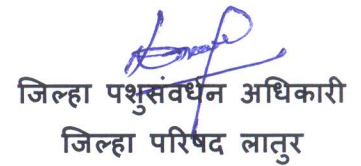 जिल्हा पशुसंवर्धन अधिकारी
जिल्हा परिषद लातुर